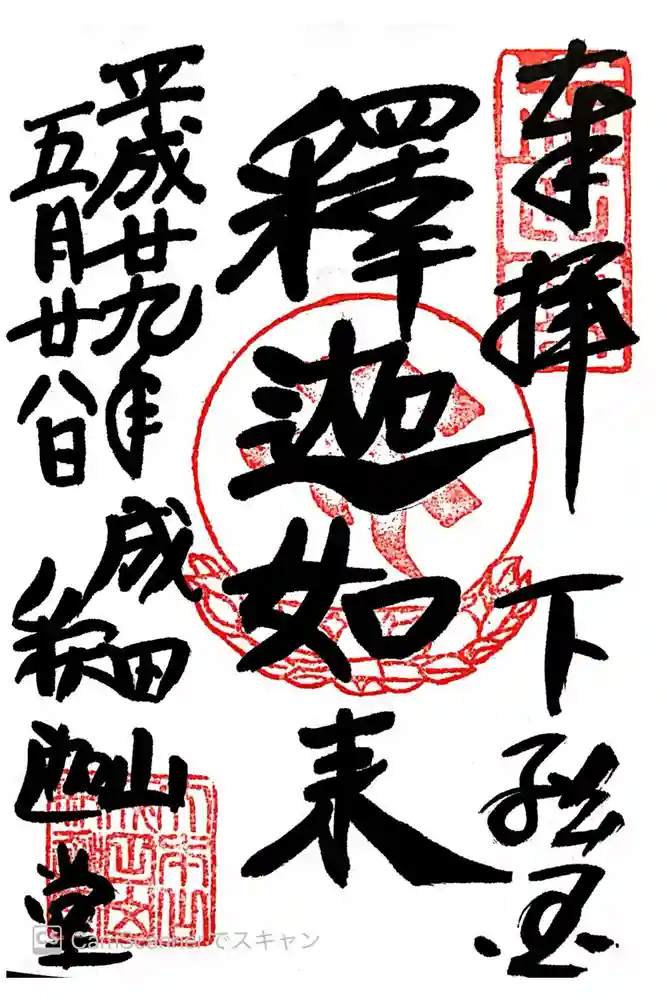 奉拝 下総国
釋迦如来
平成廿九年
五月廿八日
成田山
釈迦堂
CamScannerでスキャン